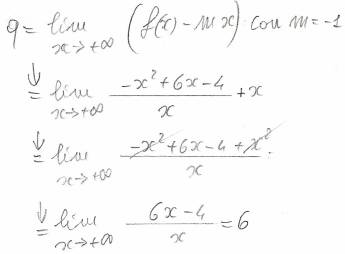 q = lim x→+∞ (f(x) − mx) con m = −1
⇓ = lim x→+∞ (−x² + 6x − 4)/x + x
⇓ = lim x→+∞ (−x² + 6x − 4 + x²)/x .
⇓ = lim x→+∞ (6x − 4)/x = 6